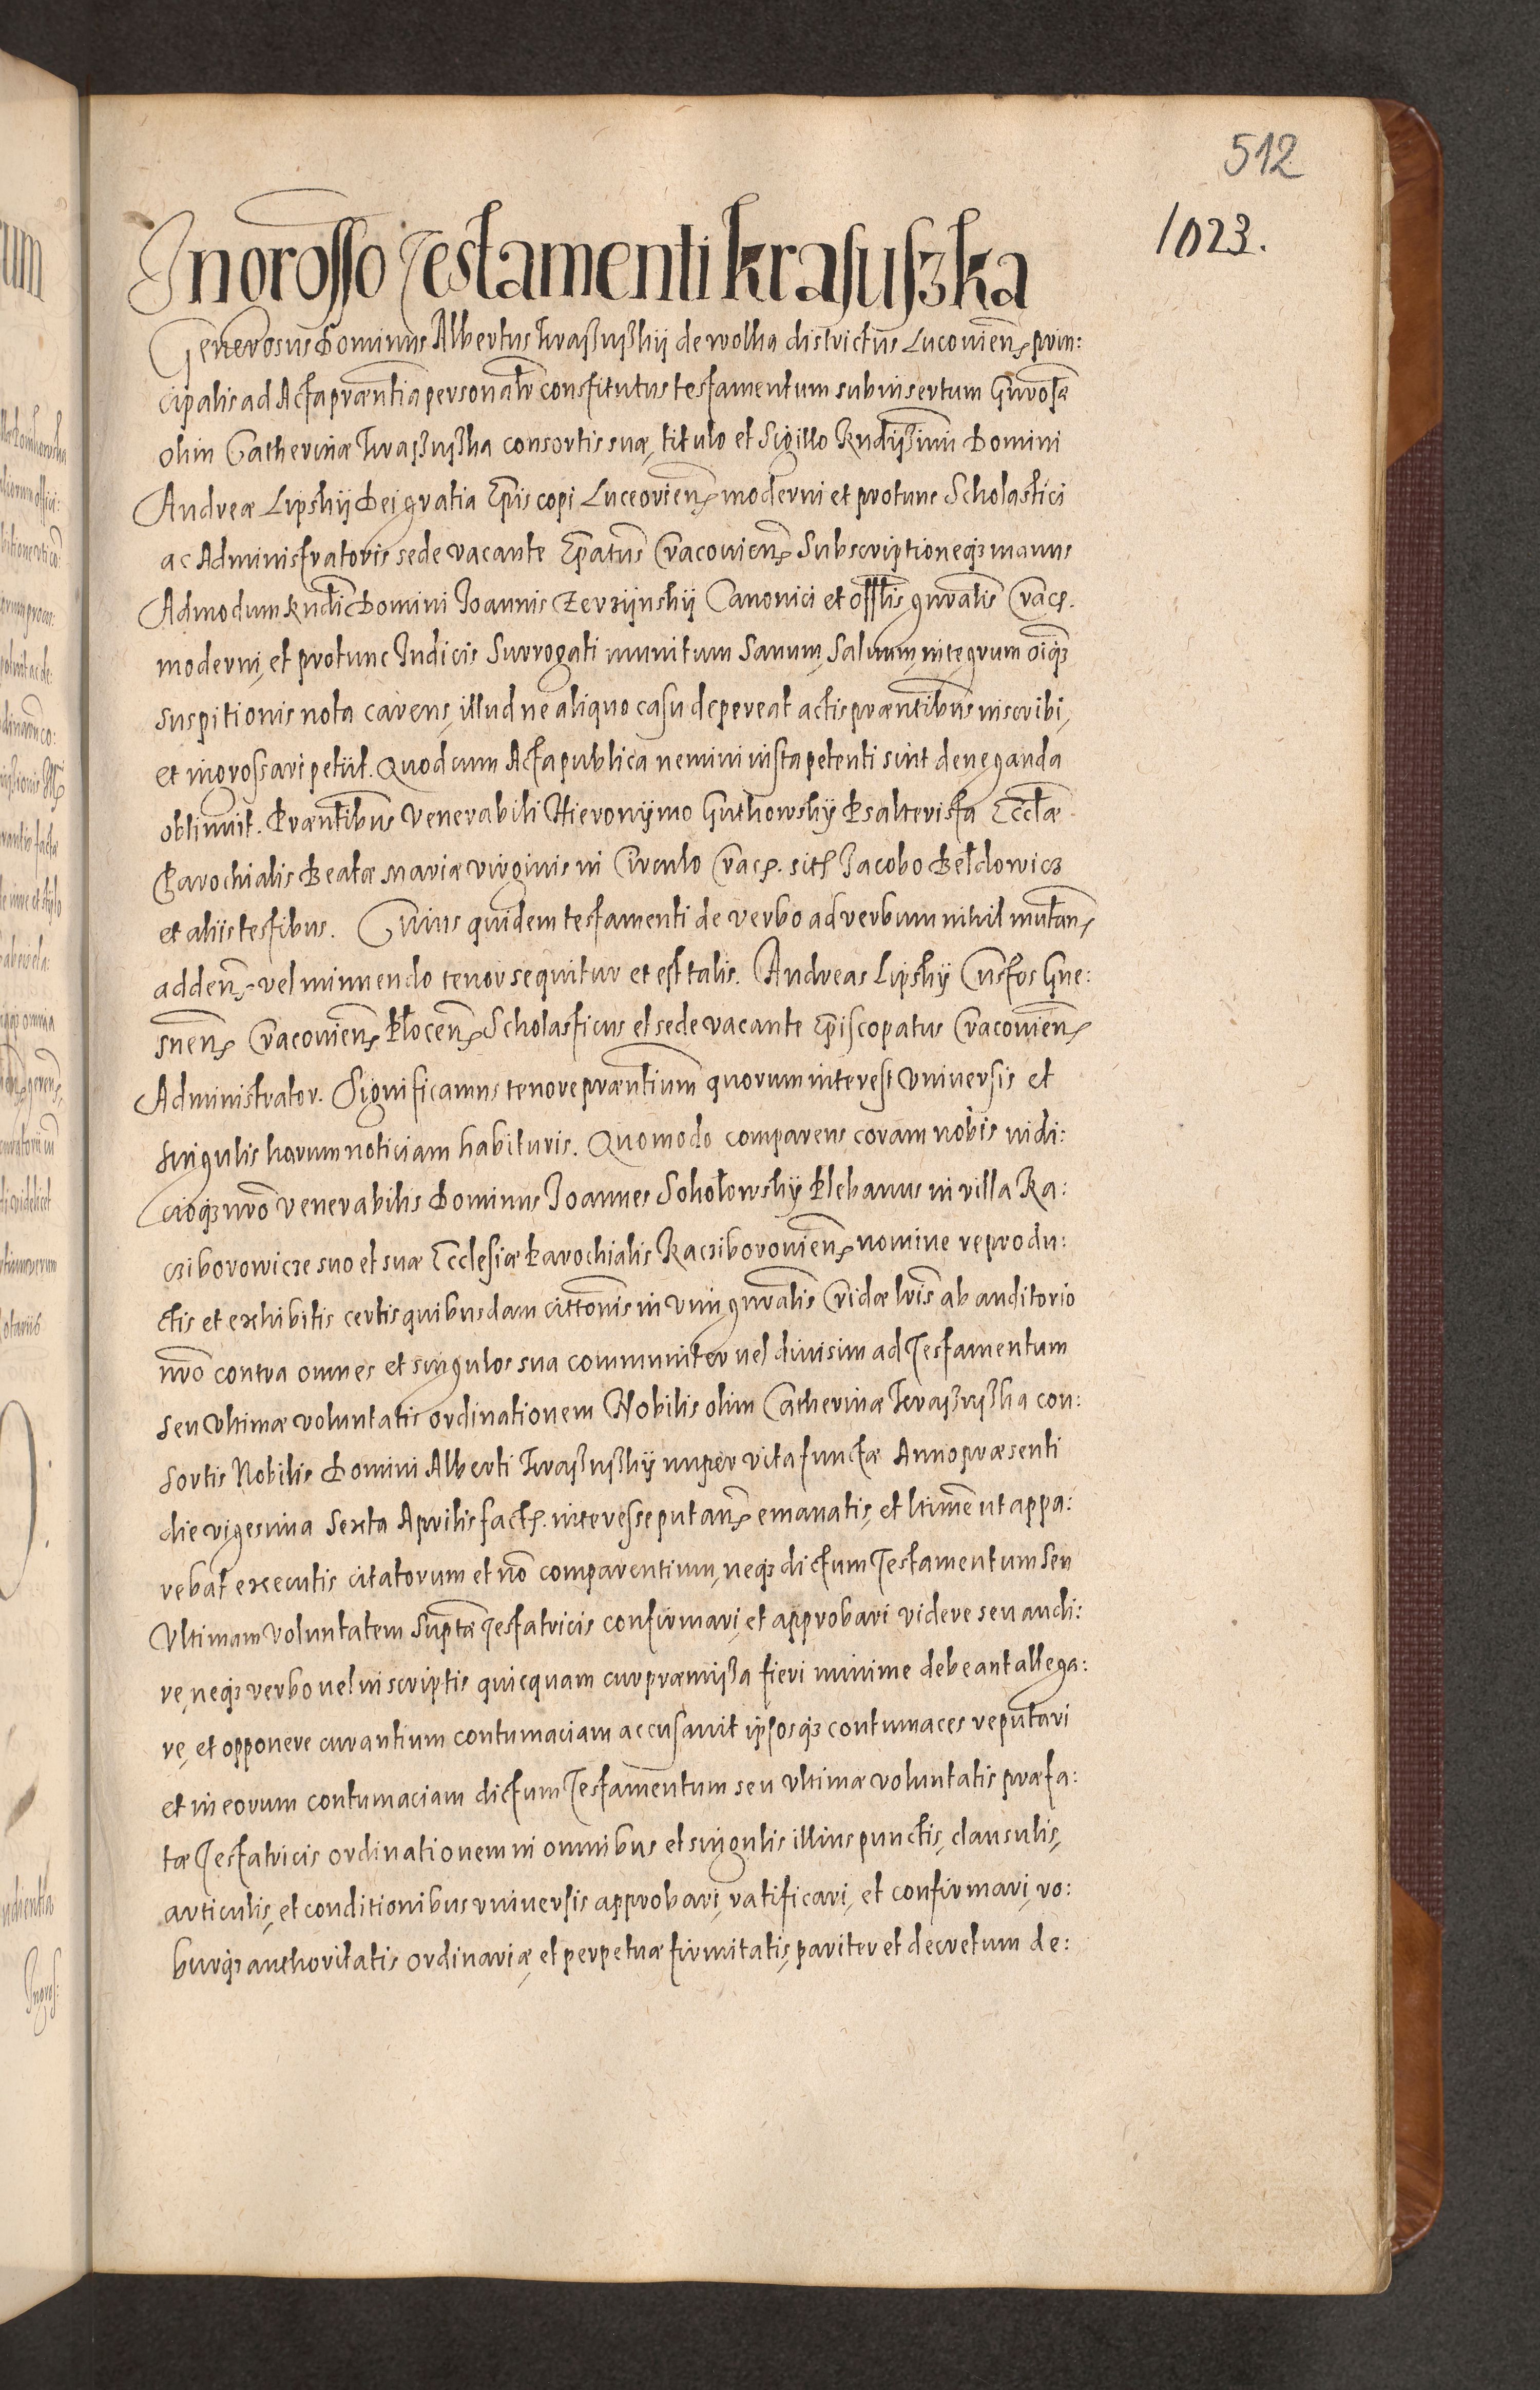 512
1023.
Ingrosso Testamenti krasuszka
Generosus Dominus Albertus Krassusskij de wolka districtus Luconien̄ prin:
cipalis ad Acta præn̄tia personalr̄ constitutus testamentum subinsertum Gn̄rosæ
olim Catherinæ Krassusska consortis suæ, titulo et Sigillo Rn̄dissimi Domini
Andreæ Lipskij Dei gratia Ep̄iscopi Luceorien̄ moderni et protunc Scholastici
ac Administratoris sede vacante Ep̄atus Cracouien̄ Subscriptioneq3 manus
Admodum Rn̄di Domini Joannis Zerzijnskij Canonici et offlis gn̄ralis Crac̄.
moderni, et protunc Iudicis Surrogati munitum Sanum, Saluum, integrum oīq3
suspitionis nota carens, illud ne aliquo casu depereat actis præn̄tibus inscribi,
et ingrossari petiit. Quod cum Acta publica nemini iusta petenti sint deneganda
obtinuit. Præn̄tibus Venerabili Hieronijmo Gutkowskij Psalterista Eccl̄æ
Parochialis Beatæ Mariæ virginis in Circulo Crac̄. sitæ Jacobo Beldowicz
et aliis testibus. Cuius quidem testamenti de verbo ad verbum nihil mutan̄
adden̄ vel minuendo tenor sequitur et est talis. Andreas Lipskij Custos Gne:
snen̄ Cracouien̄ Plocen̄ Scholasticus et sede vacante Ep̄iscopatus Cracouien̄
Administrator. Significamus tenore præn̄tium quorum interest Vniuersis et
singulis harum noticiam habituris. Quomodo comparens coram nobis iudi:
cioq3 nr̄o Venerabilis Dominus Joannes Sokołowskij Plebanus in villa Ra:
cziborowicze suo et suæ Ecclesiæ Parochialis Racziborouien̄ nomine reprodu:
ctis et exhibitis certis quibusdam citton̄is in vim gn̄ralis Cridæ lr̄is ab auditorio
nr̄o contra omnes et singulos sua communiter uel diuisim ad Testamentum
seu Vltimæ voluntatis ordinationem Nobilis olim Catherinæ Krassusska con:
sortis Nobilis Domini Alberti Krassusskij nuper vita functæ Anno præsenti
die vigesima Sexta Aprilis fact̄. interesse putan̄ emanatis, et ltimē ut appa:
rebat executis citatorum et nō comparentium, neq3 dictum Testamentum Seu
Vltimam Voluntatem Supt̄æ Testatricis confirmari, et approbari videre seu audi:
re, neq3 verbo uel in scriptis quicquam cur præmissa fieri minime debeant allega:
re, et opponere curantium contumaciam accusauit ipsosq3 contumaces reputari
et in eorum contumaciam dictum Testamentum seu vltimæ voluntatis præfa:
tæ Testatricis ordinationem in omnibus et singulis illius punctis, clausulis,
articulis, et conditionibus vniuersis approbari, ratificari, et confirmari, ro:
burq3 authoritatis ordinariæ, et perpetuæ firmitatis, pariter et decretum de: